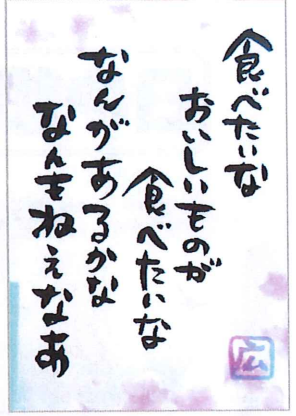 食べたいな
おいしいものが
食べたいな
なんがあるかな
なんもねえなあ
広